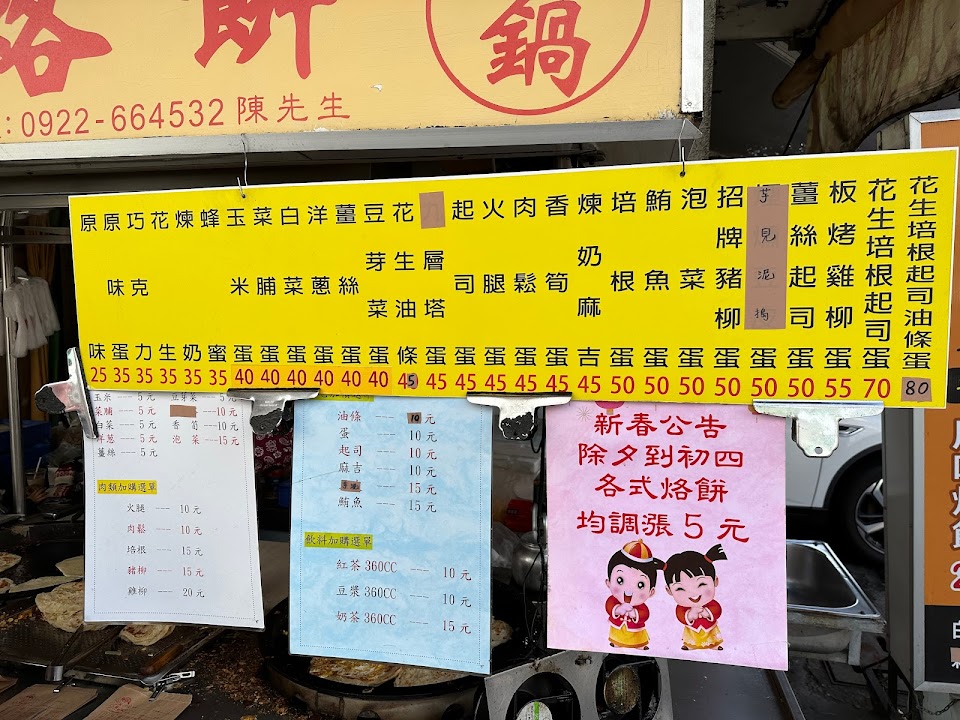 烙餅
鍋
: 0922-664532 陳先生
原味 25
原味蛋 35
巧克力 35
花生 35
煉奶 35
蜂蜜 35
玉米蛋 40
菜脯蛋 40
白菜蛋 40
洋蔥蛋 40
薑絲蛋 40
豆芽菜蛋 40
花生油條 45
層塔蛋 45
起司蛋 45
火腿蛋 45
肉鬆蛋 45
香筍蛋 45
煉奶麻吉 45
培根蛋 50
鮪魚蛋 50
泡菜蛋 50
招牌豬柳蛋 50
芋見泥搗蛋 50
薑絲起司蛋 50
板烤雞柳蛋 55
花生培根起司蛋 70
花生培根起司油條蛋 80
玉米 --- 5元 豆芽菜 --- 5元
菜脯 --- 5元 ---10元
白菜 --- 5元 香筍 ---10元
洋蔥 --- 5元 泡菜 ---15元
薑絲 --- 5元
肉類加購選單
火腿 --- 10元
肉鬆 --- 10元
培根 --- 15元
豬柳 --- 15元
雞柳 --- 20元
油條 --- 10元
蛋 --- 10元
起司 --- 10元
麻吉 --- 10元
--- 15元
鮪魚 --- 15元
飲料加購選單
紅茶360CC --- 10元
豆漿360CC --- 10元
奶茶360CC --- 15元
新春公告
除夕到初四
各式烙餅
均調漲5元